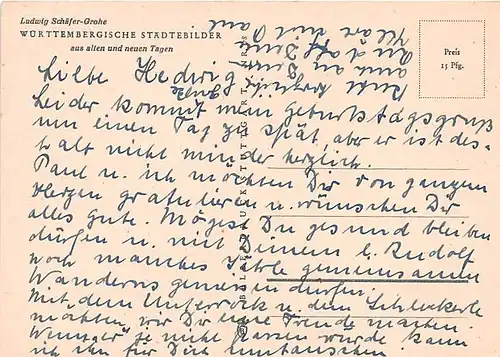 Ludwig Schäfer-Grohe
WÜRTTEMBERGISCHE STÄDTEBILDER
aus alten und neuen Tagen
Preis
15 Pfg.
Liebe Hedwig
Leider kommt mein Geburtstagsgruß
um einen Tag zu spät, aber er ist des-
halb nicht minder herzlich.
Paul u. ich möchten Dir von ganzem
Herzen gratulieren u. wünschen Dir
alles Gute. Mögest Du gesund bleiben
dürfen u. mit Deinem l. Rudolf
noch manches Jahr gemeinsamen
Wanderns geniessen dürfen.
Mit dem Unterrock u. dem Schleckerle
möchten wir Dir eine Freude machen.
Wenn je nicht passen würde kann
ich ihn für Dich umtauschen
Recht herzliche Grüße
auch an